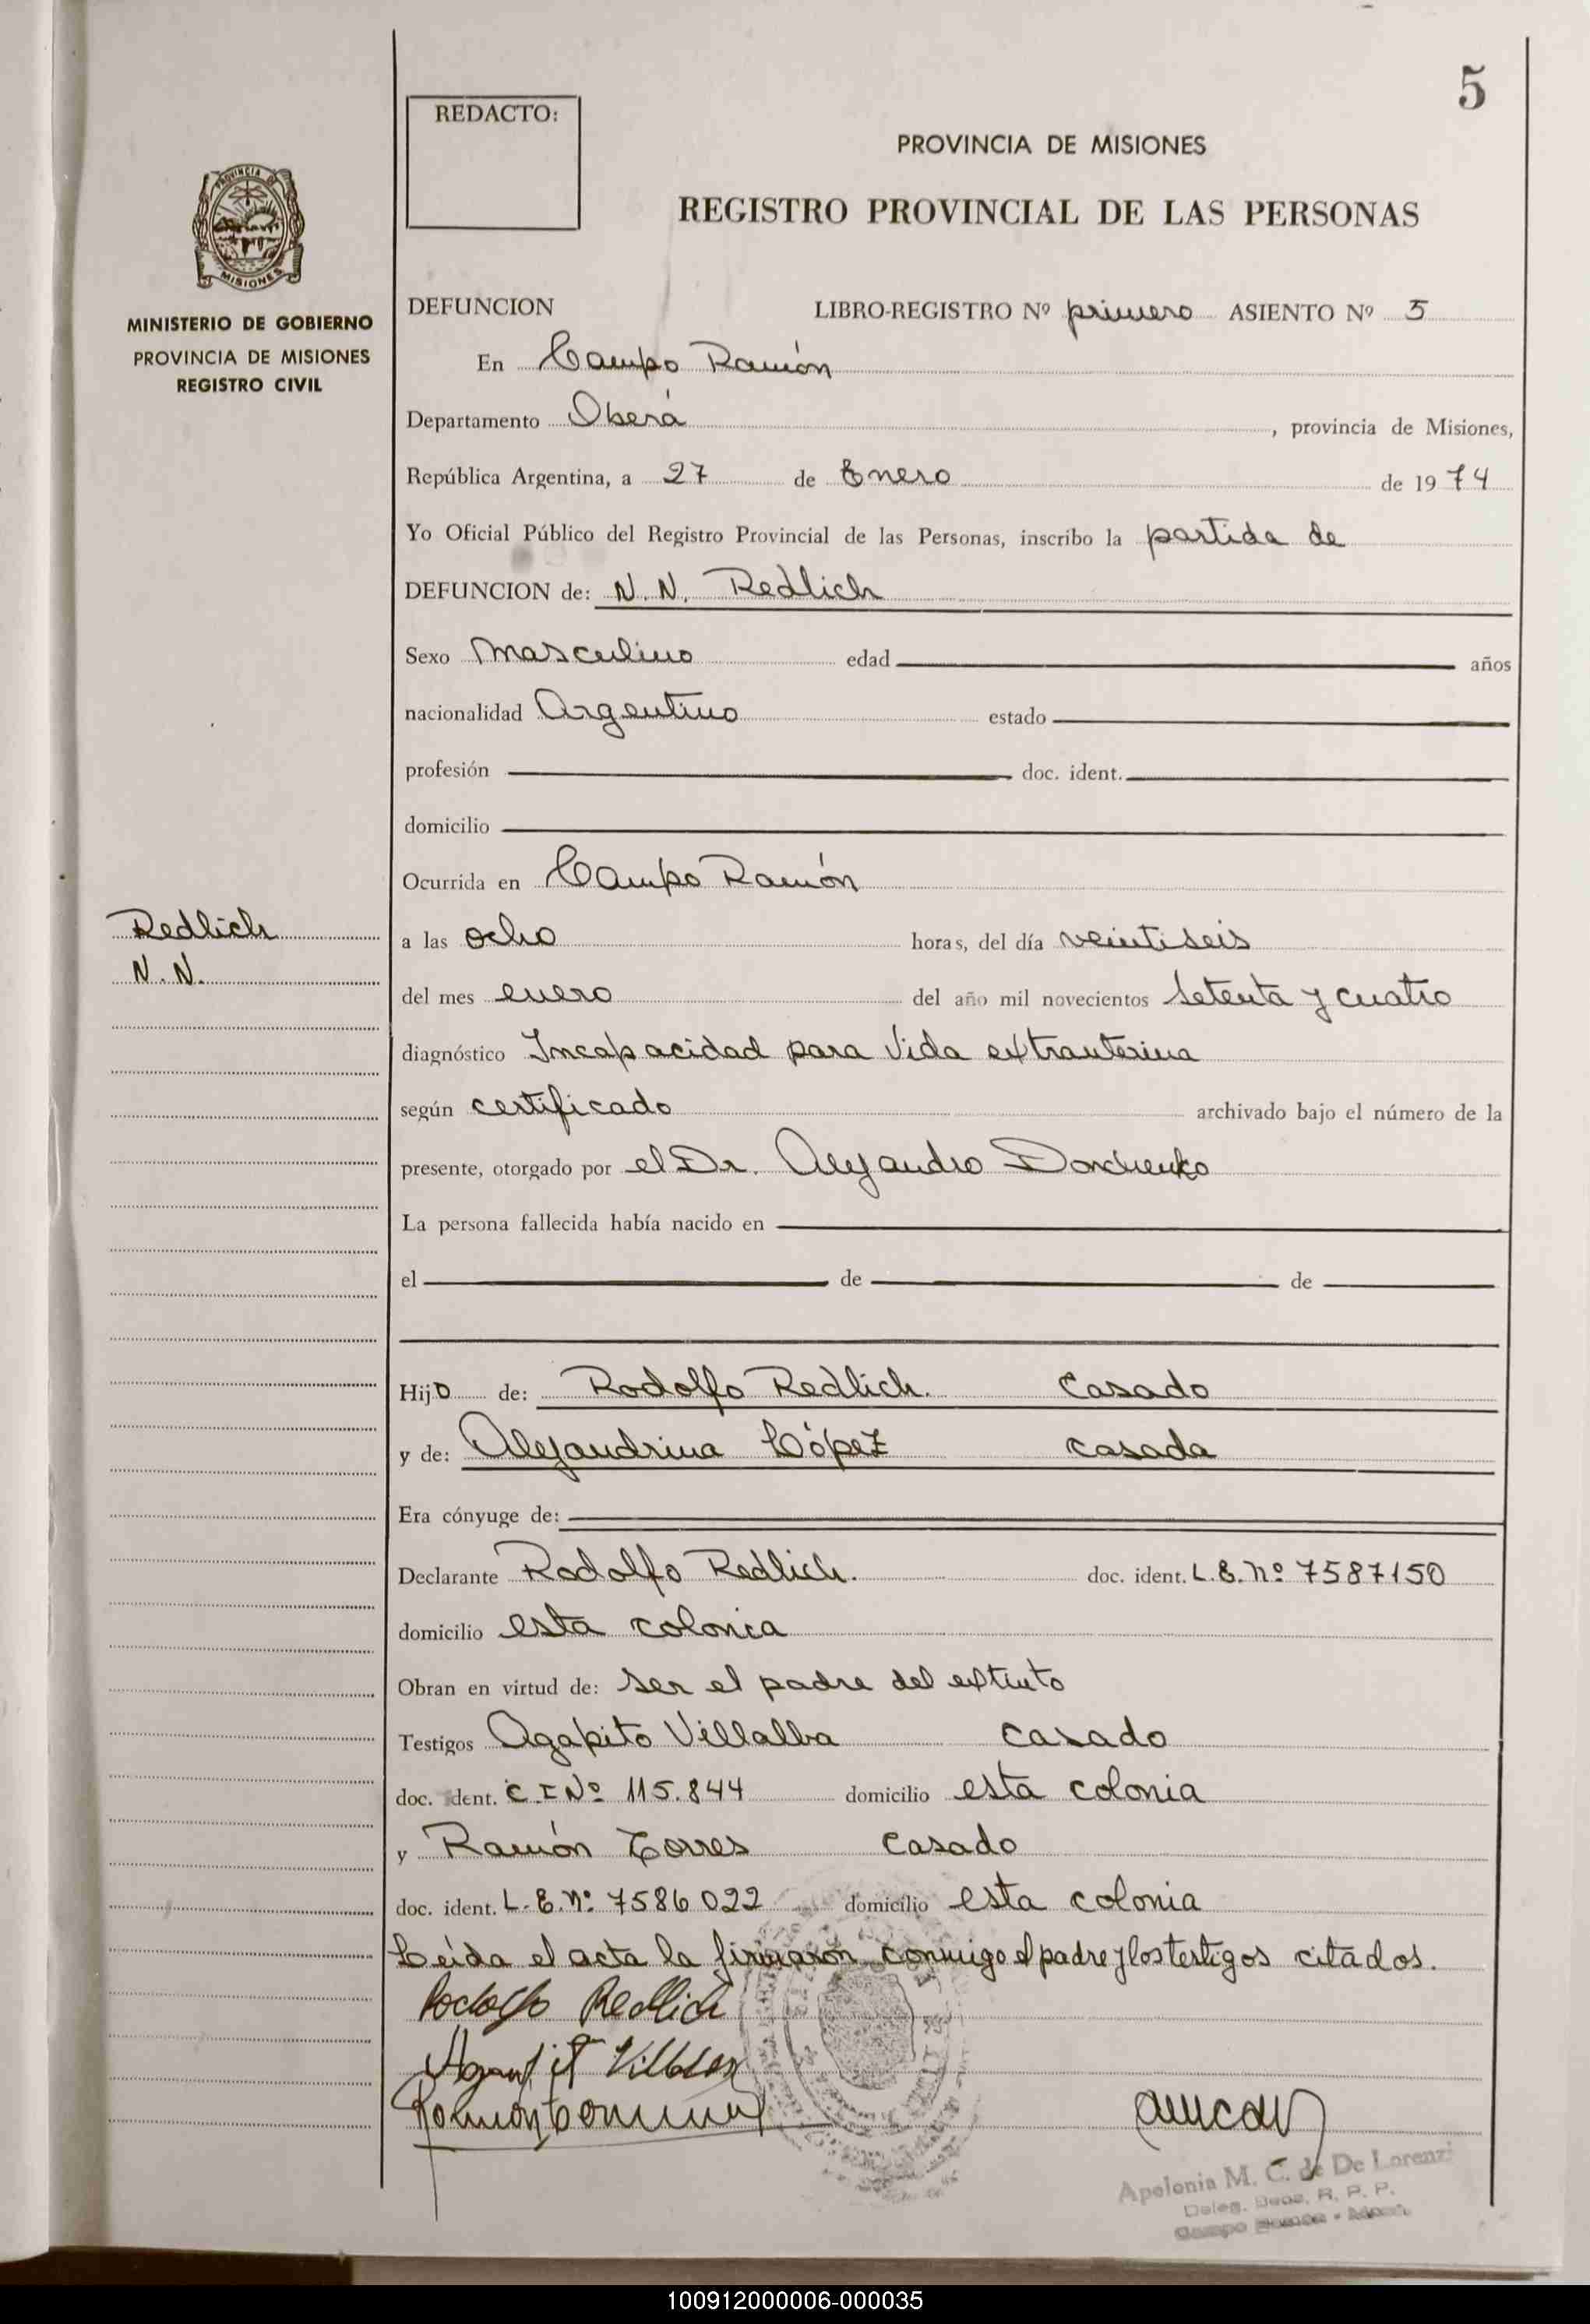 5
REDACTO:
PROVINCIA DE MISIONES
REGISTRO PROVINCIAL DE LAS PERSONAS
PROVINCIA DE
MISIONES
MINISTERIO DE GOBIERNO
PROVINCIA DE MISIONES
REGISTRO CIVIL
DEFUNCION LIBRO-REGISTRO Nº primero ASIENTO Nº 5
En Campo Ramón
Departamento Oberá, provincia de Misiones,
República Argentina, a 27 de Enero de 1974
Yo Oficial Público del Registro Provincial de las Personas, inscribo la partida de
DEFUNCION de: N.N. Redlich
Sexo masculino edad años
nacionalidad Argentino estado
profesión doc. ident.
domicilio
Ocurrida en Campo Ramón
Redlich
N.N.
a las ocho horas, del día veintiseis
del mes enero del año mil novecientos setenta y cuatro
diagnóstico Incapacidad para vida extrauterina
según certificado archivado bajo el número de la
presente, otorgado por el Dr. Alejandro Donchenko
La persona fallecida había nacido en
el de de
Hijo de: Rodolfo Redlich. casado
y de: Alejandrina López casada
Era cónyuge de:
Declarante Rodolfo Redlich. doc. ident. L.E. nº 7587150
domicilio esta colonia
Obran en virtud de: ser el padre del extinto
Testigos Agapito Villalba casado
doc. dent. C.I Nº 115.844 domicilio esta colonia
y Ramón Torres casado
doc. ident. L.E. nº 7586022 domicilio esta colonia
Leída el acta la firmaron conmigo el padre y los testigos citados.
Rodolfo Redlich
Apolonia M. C. de De Lorenzi
Deleg. R. P. P.
Campo
100912000006-000035